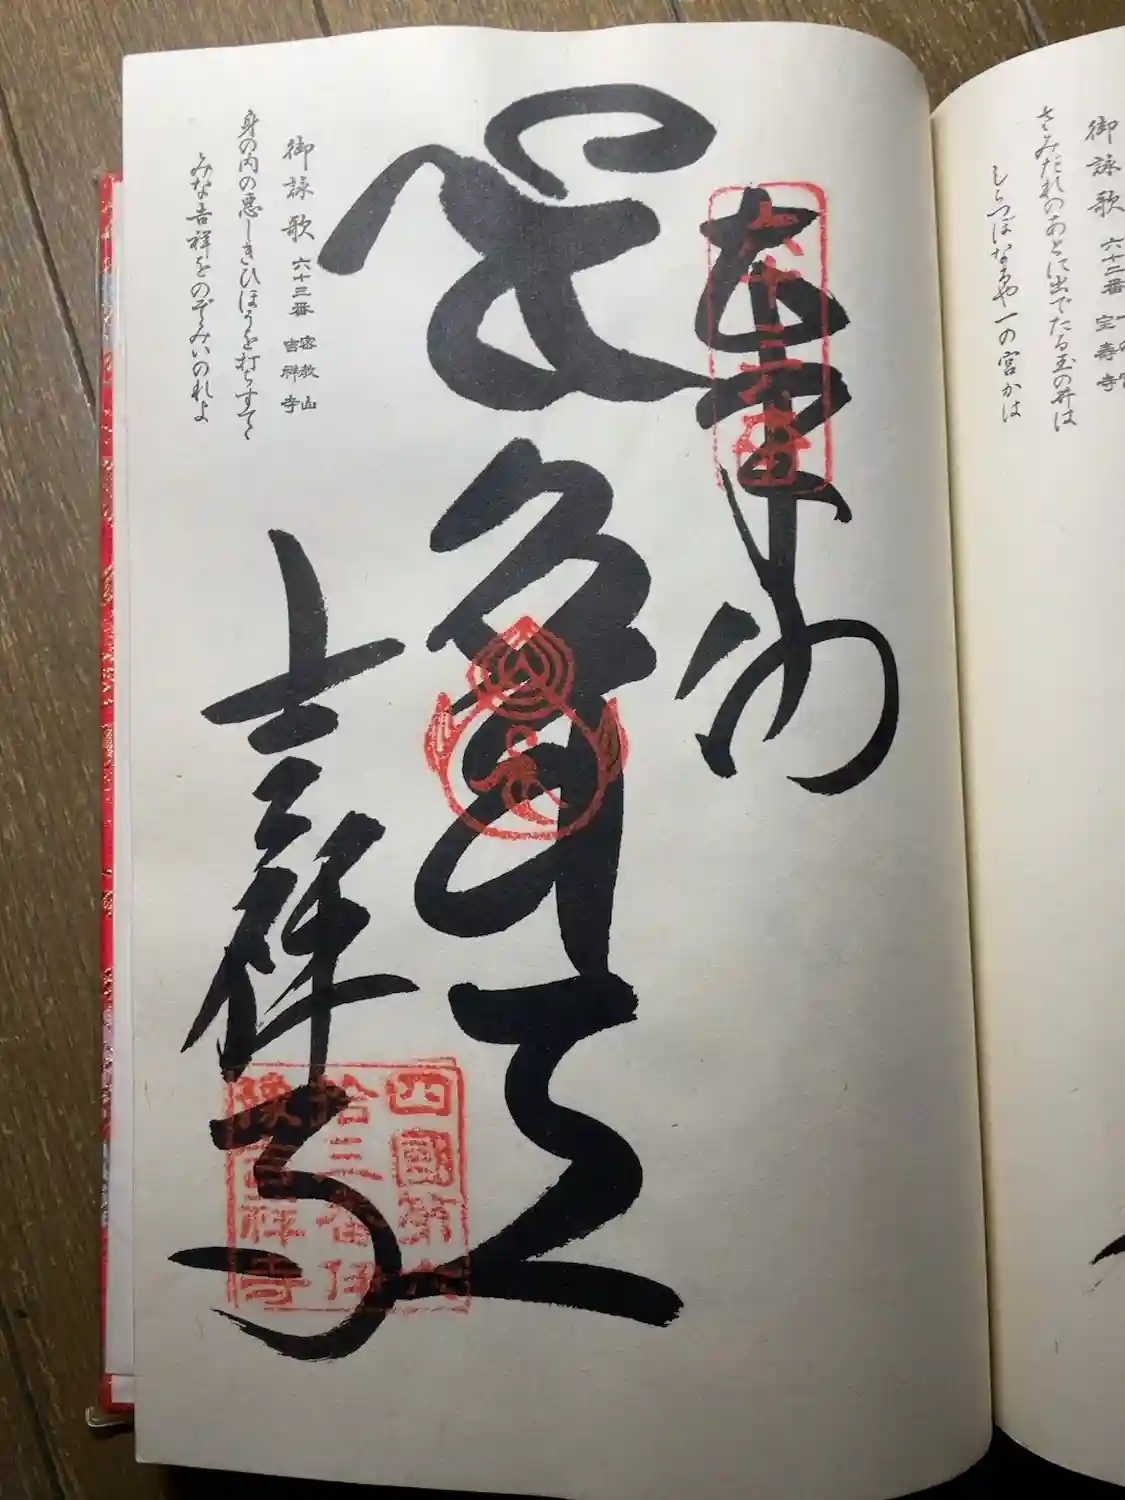 さみだれのあとに出でたる玉の井は
しらつぼなるや一の宮かは
御詠歌 六十二番 宝寿寺
奉納
六十三番
吉祥寺
四國第六
拾三番伊
豫吉祥寺
御詠歌 六十三番 密教山 吉祥寺
身の内の悪しきひほうを打ちすてゝ
みな吉祥をのぞみいのれよ